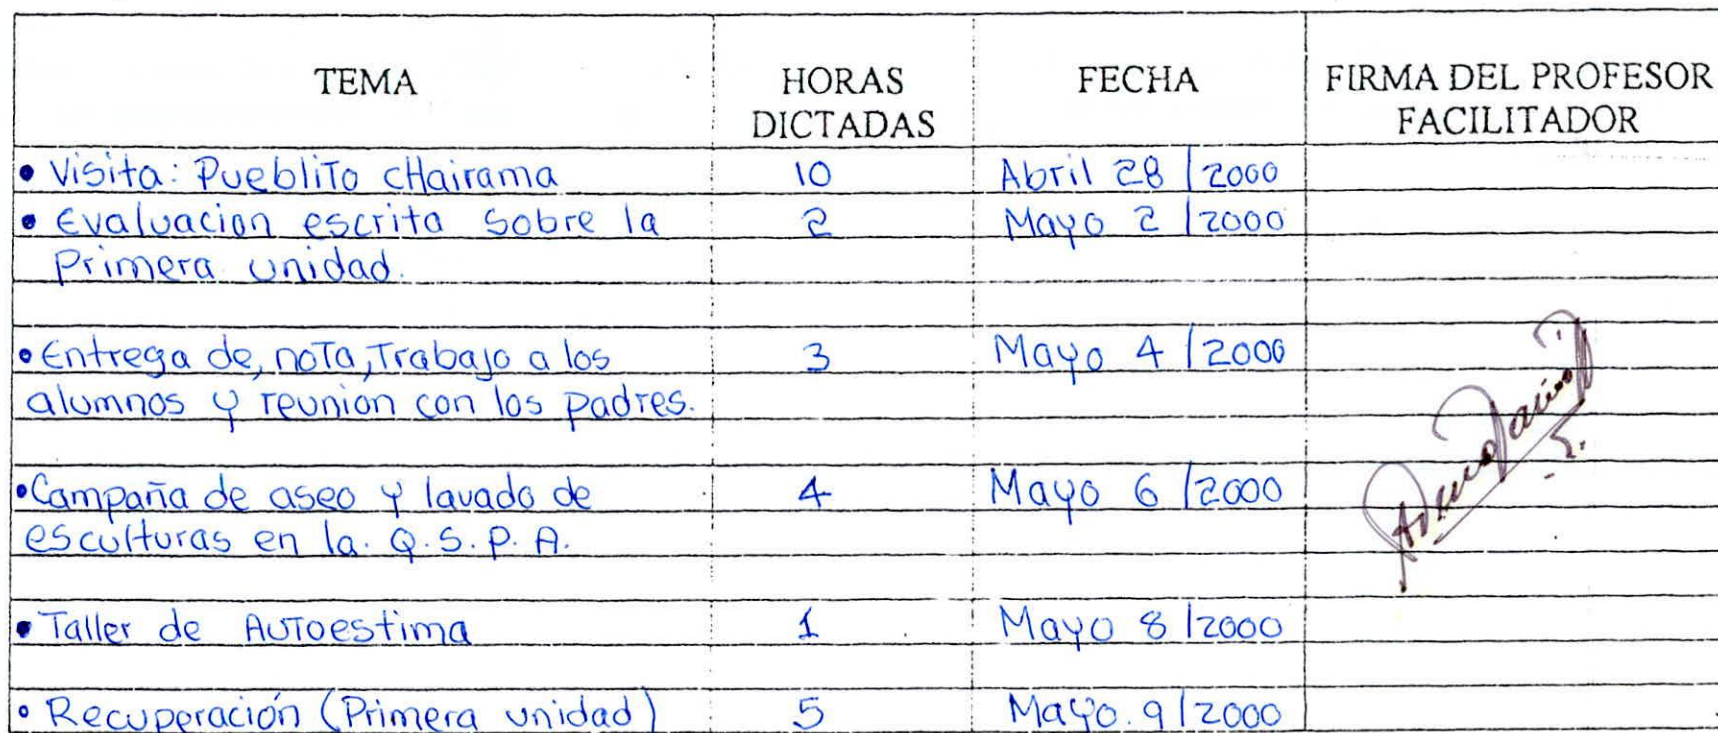 TEMA HORAS DICTADAS FECHA FIRMA DEL PROFESOR FACILITADOR
• Visita: Pueblito cHairama 10 Abril 28/2000
• Evaluacion escrita sobre la 2 Mayo 2/2000
Primera unidad.
• Entrega de, nota, Trabajo a los 3 Mayo 4/2000
alumnos y reunion con los padres.
• Campaña de aseo y lavado de 4 Mayo 6/2000
esculturas en la. Q.S.P.A.
• Taller de Autoestima 1 Mayo 8/2000
• Recuperación (Primera unidad) 5 Mayo. 9/2000